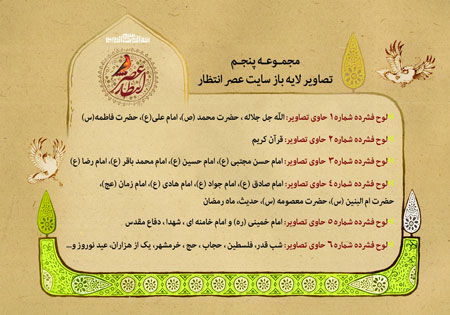 عصر انتظار
مجموعه پنجم
تصاویر لایه باز سایت عصر انتظار
لوح فشرده شماره ۱ حاوی تصاویر: الله جل جلاله ، حضرت محمد (ص)، امام علی(ع)، حضرت فاطمه(س)
لوح فشرده شماره ۲ حاوی تصاویر: قرآن کریم
لوح فشرده شماره ۳ حاوی تصاویر: امام حسن مجتبی (ع)، امام حسین (ع)، امام محمد باقر (ع)، امام رضا (ع)
لوح فشرده شماره ۴ حاوی تصاویر: امام صادق (ع)، امام جواد (ع)، امام هادی (ع)، امام زمان (عج)،
حضرت ام البنین (س)، حضرت معصومه (س)، حدیث، ماه رمضان
لوح فشرده شماره ۵ حاوی تصاویر: امام خمینی (ره) و امام خامنه ای ، شهدا ، دفاع مقدس
لوح فشرده شماره ۶ حاوی تصاویر: شب قدر، فلسطین ، حجاب ، حج ، خرمشهر، یک از هزاران، عید نوروز و...